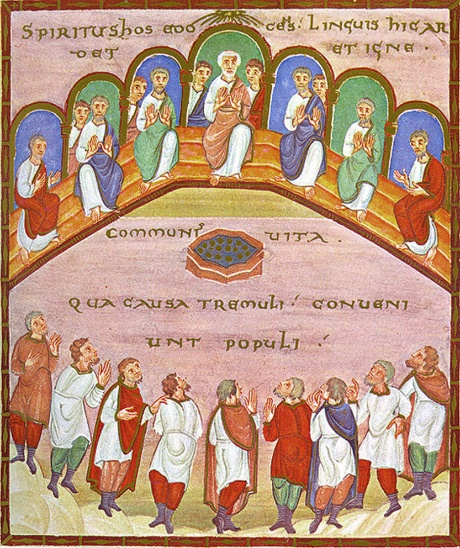 SPIRITUS HOS EDO CES: LINGUIS HIC AR
DET ET IGNE ·
COMMUNIˢ UITA ·
QUA CAUSA TREMULI: CONUENI
UNT POPULI: